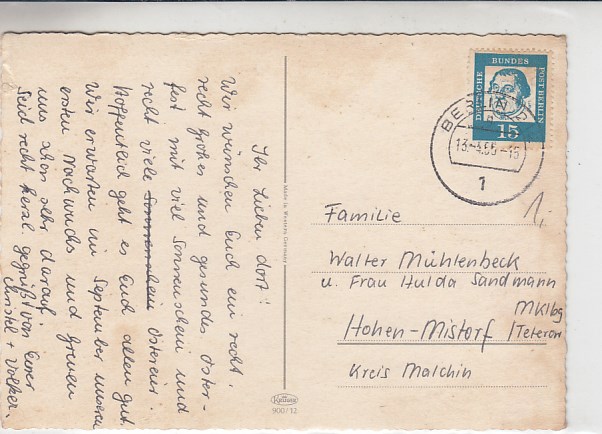 Ihr Lieben dort!
Wir wünschen Euch ein recht,
recht großes und gesundes Oster-
fest mit viel Sonnenschein und
recht viele Sonnenschein Ostereier.
Hoffentlich geht es Euch allen gut.
Wir erwarten im September unseren
ersten Nachwuchs und freuen
uns schon sehr darauf.
Seid recht herzl. gegrüßt von Euren
Christel + Volker.
Made in Western Germany
Krüger
900/12
DEUTSCHE BUNDESPOST BERLIN
15
BERLIN
1
1,-
Familie
Walter Mühlenbeck
u. Frau Hulda Sandmann
Mklbg
Hohen-Mistorf /Teterow
Kreis Malchin